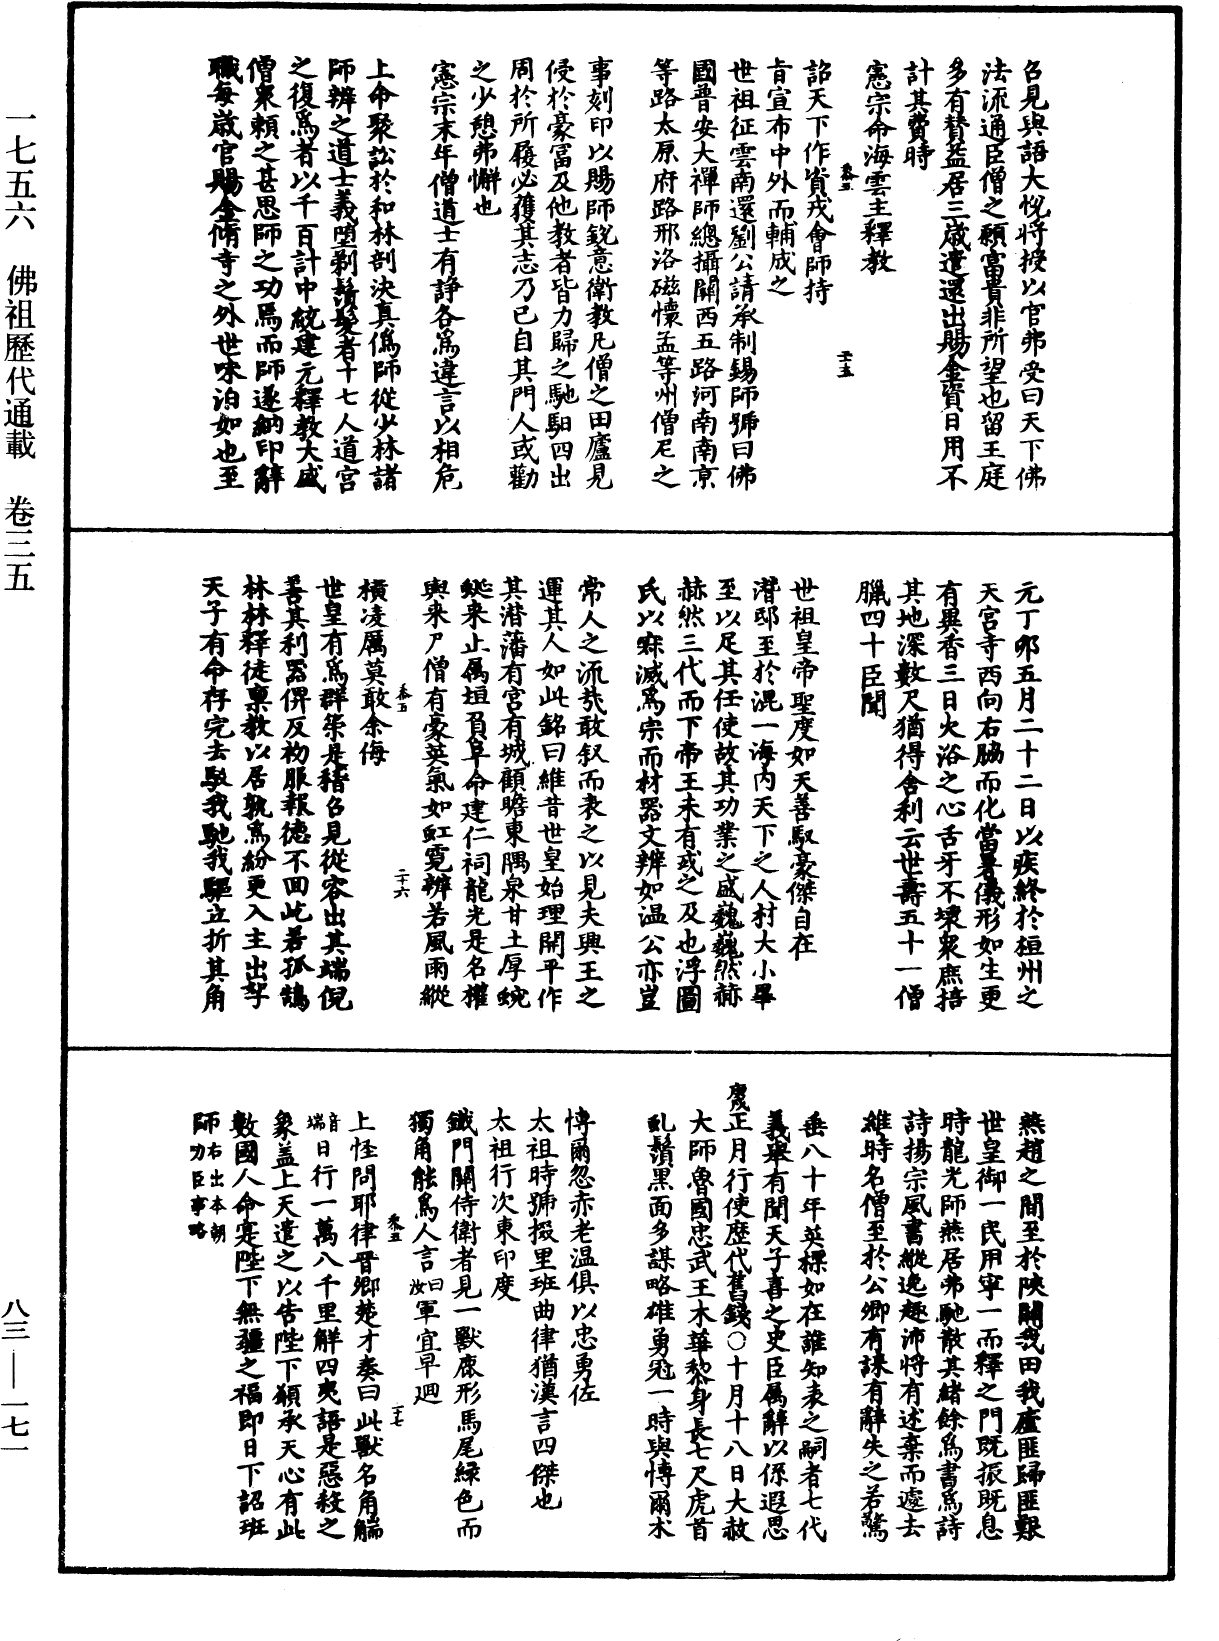 召見與語大悅將授以官弗受曰天下佛
法流通臣僧之願富貴非所望也留王庭
多有贊益居三歲遣還出賜金資日用不
計其費時
憲宗命海雲主釋教
詔天下作資戒會師持
旨宣布中外而輔成之
世祖征雲南還劉公請承制錫師號曰佛
國普安大禪師總攝關西五路河南南京
等路太原府路邢洛磁懷孟等州僧尼之
事刻印以賜師銳意衛教凡僧之田廬見
侵於豪富及他教者皆力歸之馳馹四出
周於所履必獲其志乃已自其門人或勸
之少憩弗懈也
憲宗末年僧道士有諍各為違言以相危
上命聚訟於和林剖決真偽師從少林諸
師辨之道士義墮剃鬚髮者十七人道宮
之復為者以千百計中統建元釋教大盛
僧衆賴之甚思師之功焉而師遂納印辭
職每歲官賜金脩寺之外世味泊如也至
元丁卯五月二十二日以疾終於桓州之
天宮寺西向右脇而化當暑儀形如生更
有異香三日火浴之心舌牙不壞衆庶掊
其地深數尺猶得舍利云世壽五十一僧
臘四十臣聞
世祖皇帝聖度如天善馭豪傑自在
潛邸至於混一海内天下之人材大小畢
至以足其任使故其功業之盛巍巍然赫
赫然三代而下帝王未有或之及也浮圖
氏以寂滅為宗而材器文辨如温公亦豈
常人之流哉敢叙而表之以見夫興王之
運其人如此銘曰維昔世皇始理開平作
其潛藩有宮有城顧瞻東隅泉甘土厚蜿
蜒來止屬垣負阜命建仁祠龍光是名權
輿來尸僧有豪英氣如虹霓辨若風雨縱
橫凌厲莫敢余侮
世皇有為群策是稽召見從容出其端倪
善其利器俾反初服報德不回屹若孤鵠
林林釋徒稟教以居孰為紛更入主出孥
天子有命存完去馭我馳我驅立折其角
燕趙之間至於陝關我田我廬匪歸匪艱
世皇御一民用寧一而釋之門既振既息
時龍光師燕居弗馳散其緒餘為書為詩
詩揚宗風書縱逸趣沛將有述棄而遽去
維時名僧至於公卿有誄有辭失之若驚
垂八十年英標如在誰知表之嗣者七代
義舉有聞天子喜之史臣屬辭以係遐思
庚戌正月行使歷代舊錢○十月十八日大赦
大師魯國忠武王木華黎身長七尺虎首
虬鬚黑面多謀略雄勇冠一時與博爾朮
博爾忽赤老温俱以忠勇佐
太祖時號掇里班曲律猶漢言四傑也
太祖行次東印度
鐵門關侍衛者見一獸鹿形馬尾綠色而
獨角能為人言曰汝軍宜早迴
上怪問耶律晉卿楚才奏曰此獸名角腨
音端日行一萬八千里解四夷語是惡殺之
象蓋上天遣之以告陛下願承天心有此
數國人命寔陛下無疆之福即日下詔班
師右出本朝功臣事略
叅五
二十五
叅五
二十六
叅五
二十七
一七五六　佛祖歷代通載　卷三五
八三——一七一